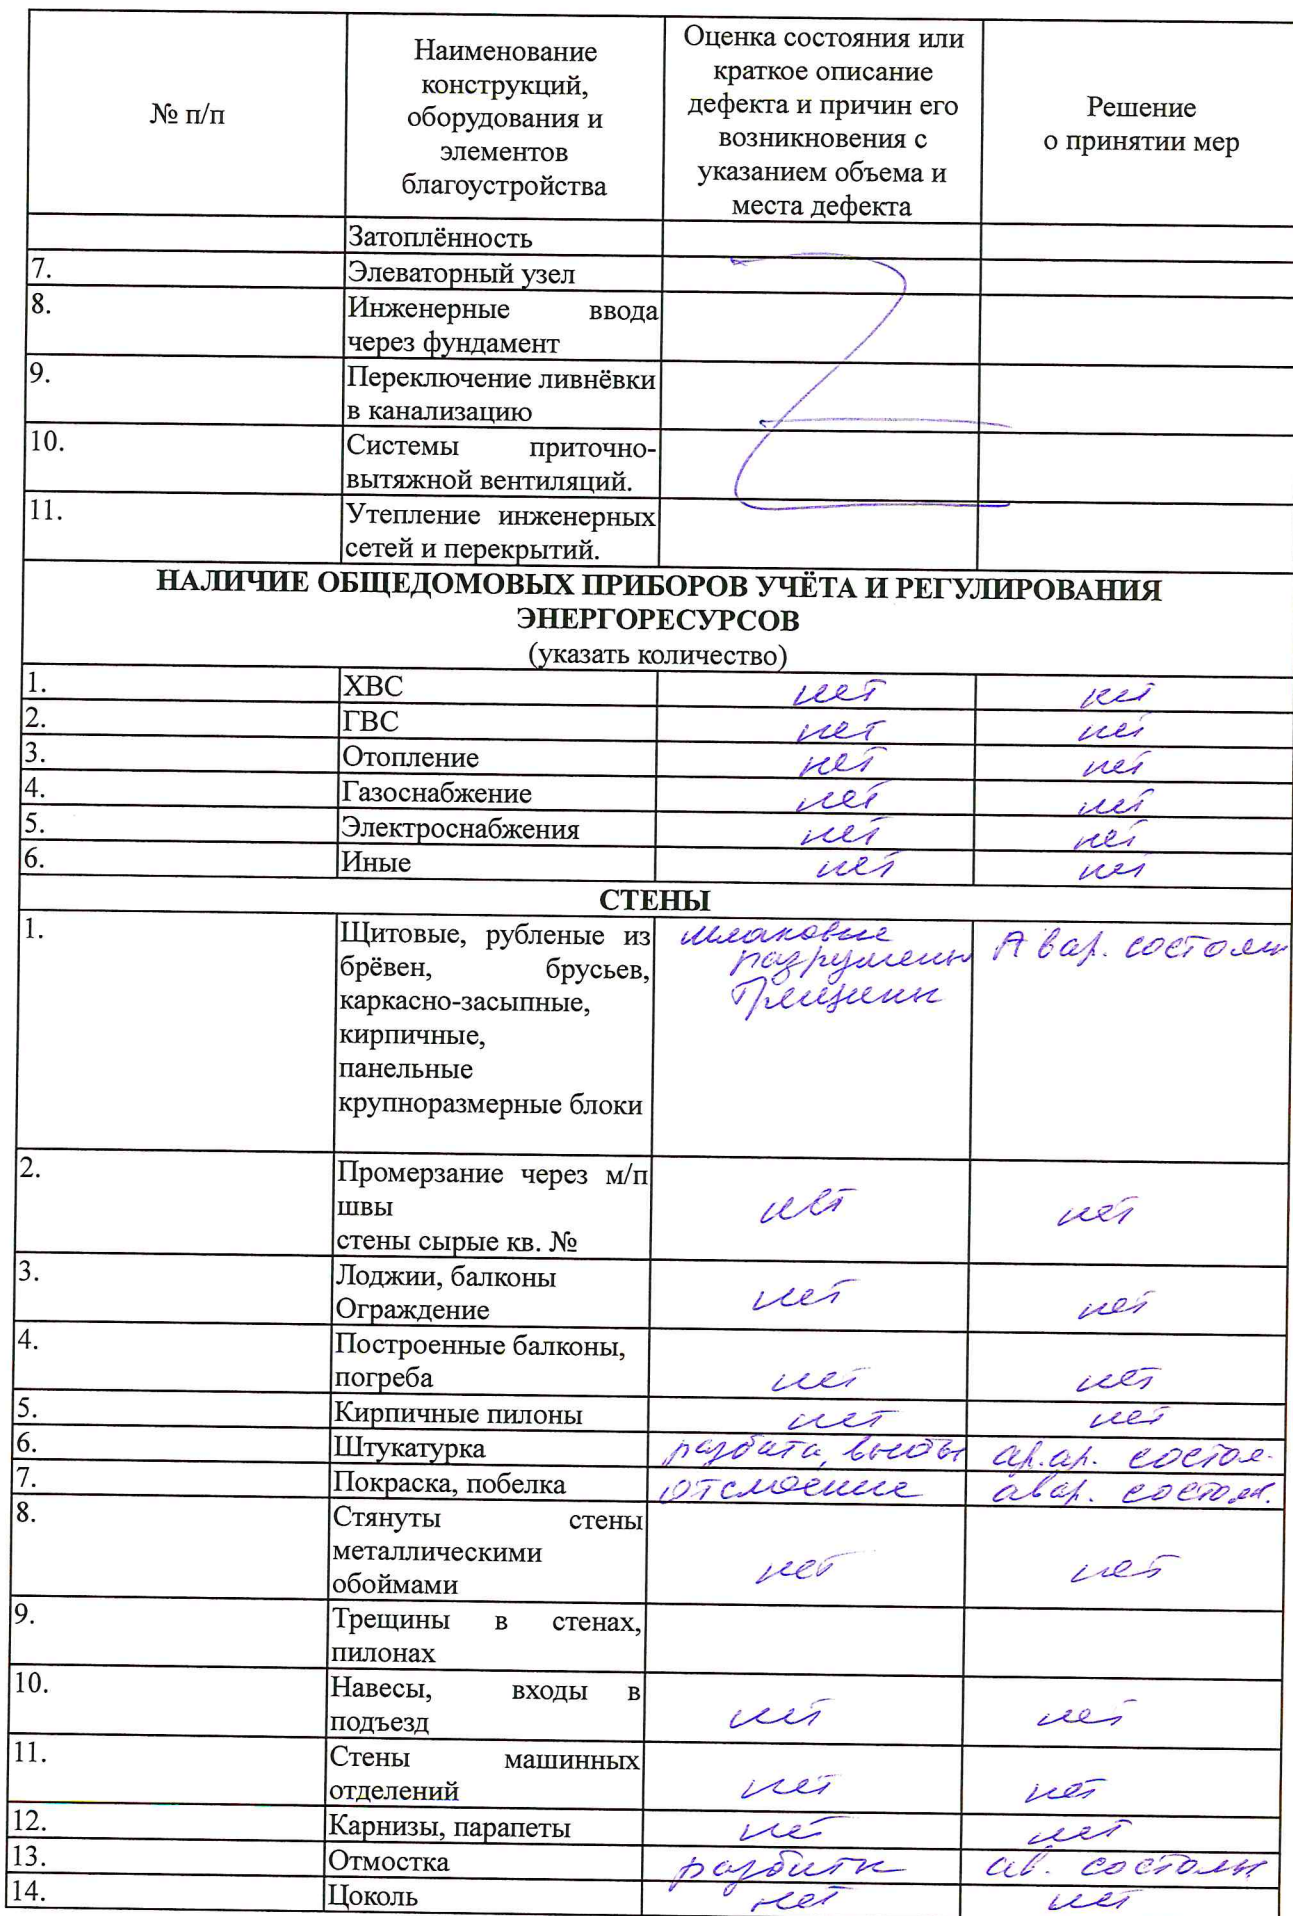 № п/п
Наименование
конструкций,
оборудования и
элементов
благоустройства
Оценка состояния или
краткое описание
дефекта и причин его
возникновения с
указанием объема и
места дефекта
Решение
о принятии мер
Затоплённость
7. Элеваторный узел
8. Инженерные ввода
через фундамент
9. Переключение ливнёвки
в канализацию
10. Системы приточно-
вытяжной вентиляций.
11. Утепление инженерных
сетей и перекрытий.
НАЛИЧИЕ ОБЩЕДОМОВЫХ ПРИБОРОВ УЧЁТА И РЕГУЛИРОВАНИЯ
ЭНЕРГОРЕСУРСОВ
(указать количество)
1. ХВС нет нет
2. ГВС нет нет
3. Отопление нет нет
4. Газоснабжение нет нет
5. Электроснабжения нет нет
6. Иные нет нет
СТЕНЫ
1. Щитовые, рубленые из
брёвен, брусьев,
каркасно-засыпные,
кирпичные,
панельные
крупноразмерные блоки
шлаковые
разрушены
Трещины
Авар. состоян
2. Промерзание через м/п
швы
стены сырые кв. №
нет нет
3. Лоджии, балконы
Ограждение
нет нет
4. Построенные балконы,
погреба
нет нет
5. Кирпичные пилоны нет нет
6. Штукатурка разбита, состоя.
7. Покраска, побелка отслоение авар. состоян.
8. Стянуты стены
металлическими
обоймами
нет нет
9. Трещины в стенах,
пилонах
10. Навесы, входы в
подъезд
нет нет
11. Стены машинных
отделений
нет нет
12. Карнизы, парапеты нет нет
13. Отмостка разбита ав. состоян
14. Цоколь нет нет